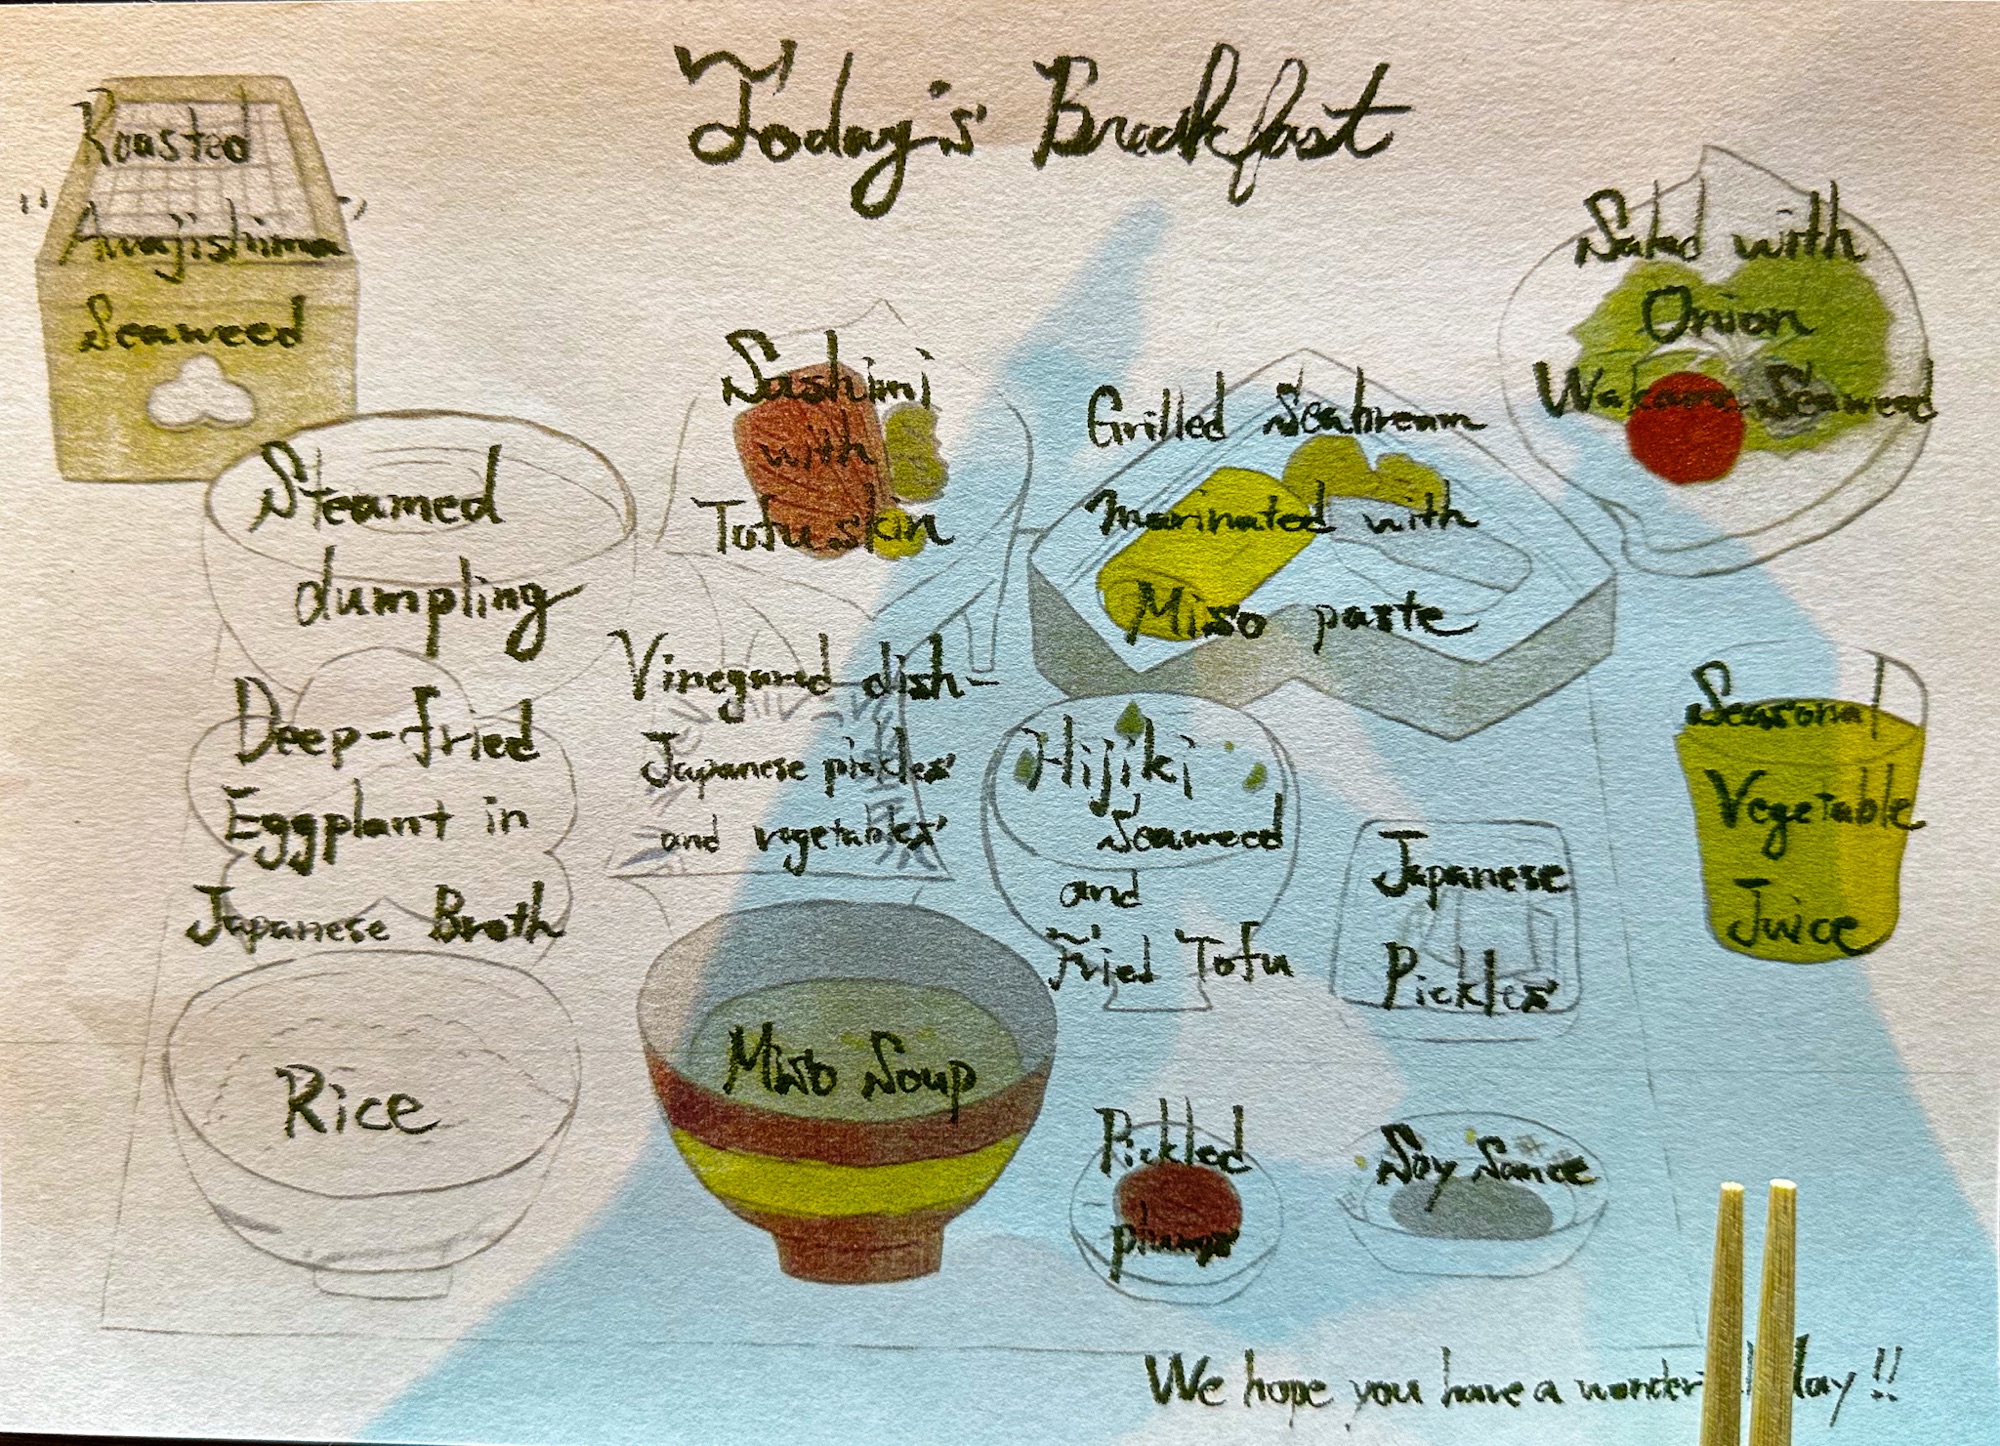 Today's Breakfast
Roasted
"Awajishima"
Seaweed
Steamed
dumpling
Deep-fried
Eggplant in
Japanese Broth
Rice
Sashimi
with
Tofu skin
Vinegared dish-
Japanese pickles
and vegetables
Miso Soup
Grilled Seabream
marinated with
Miso paste
Hijiki
Seaweed
and
Fried Tofu
Japanese
Pickles
Pickled
plums
Soy Sauce
Salad with
Onion
Wakame Seaweed
Seasonal
Vegetable
Juice
We hope you have a wonder